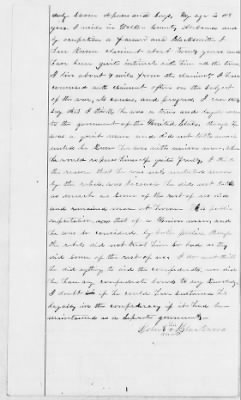 duly sworn deposes and says, My age is 48
years I reside in County Arkansas and
by occupation a Farmer and Blacksmith I
have known claimant about twenty years and
have been quite intimate with him all the time
I live about 4 miles from the claimant. I have
conversed with claimant often on the subject
of the war, its causes, and progress, I can safely
say that I think he was a true and loyal man
to the government of the United States, though he
was a quiet man and did not talk much
until he knew he was with union men, when
he would express himself quite freely, I think
the reason that he was not molested more
by the rebels was because he did not talk
as much as some of the rest of us did
and remained more at home. His public
reputation was that of a Union man, and
he was so considered by both parties though
the rebels did not treat him as bad as they
did some of the rest of us. I do not think
he did anything to aid the confederacy, nor did
he have any confederate bonds to my knowledge
I doubt if he could have sustained his
loyalty in the confederacy if it had been
maintained as a separate government.
John
1